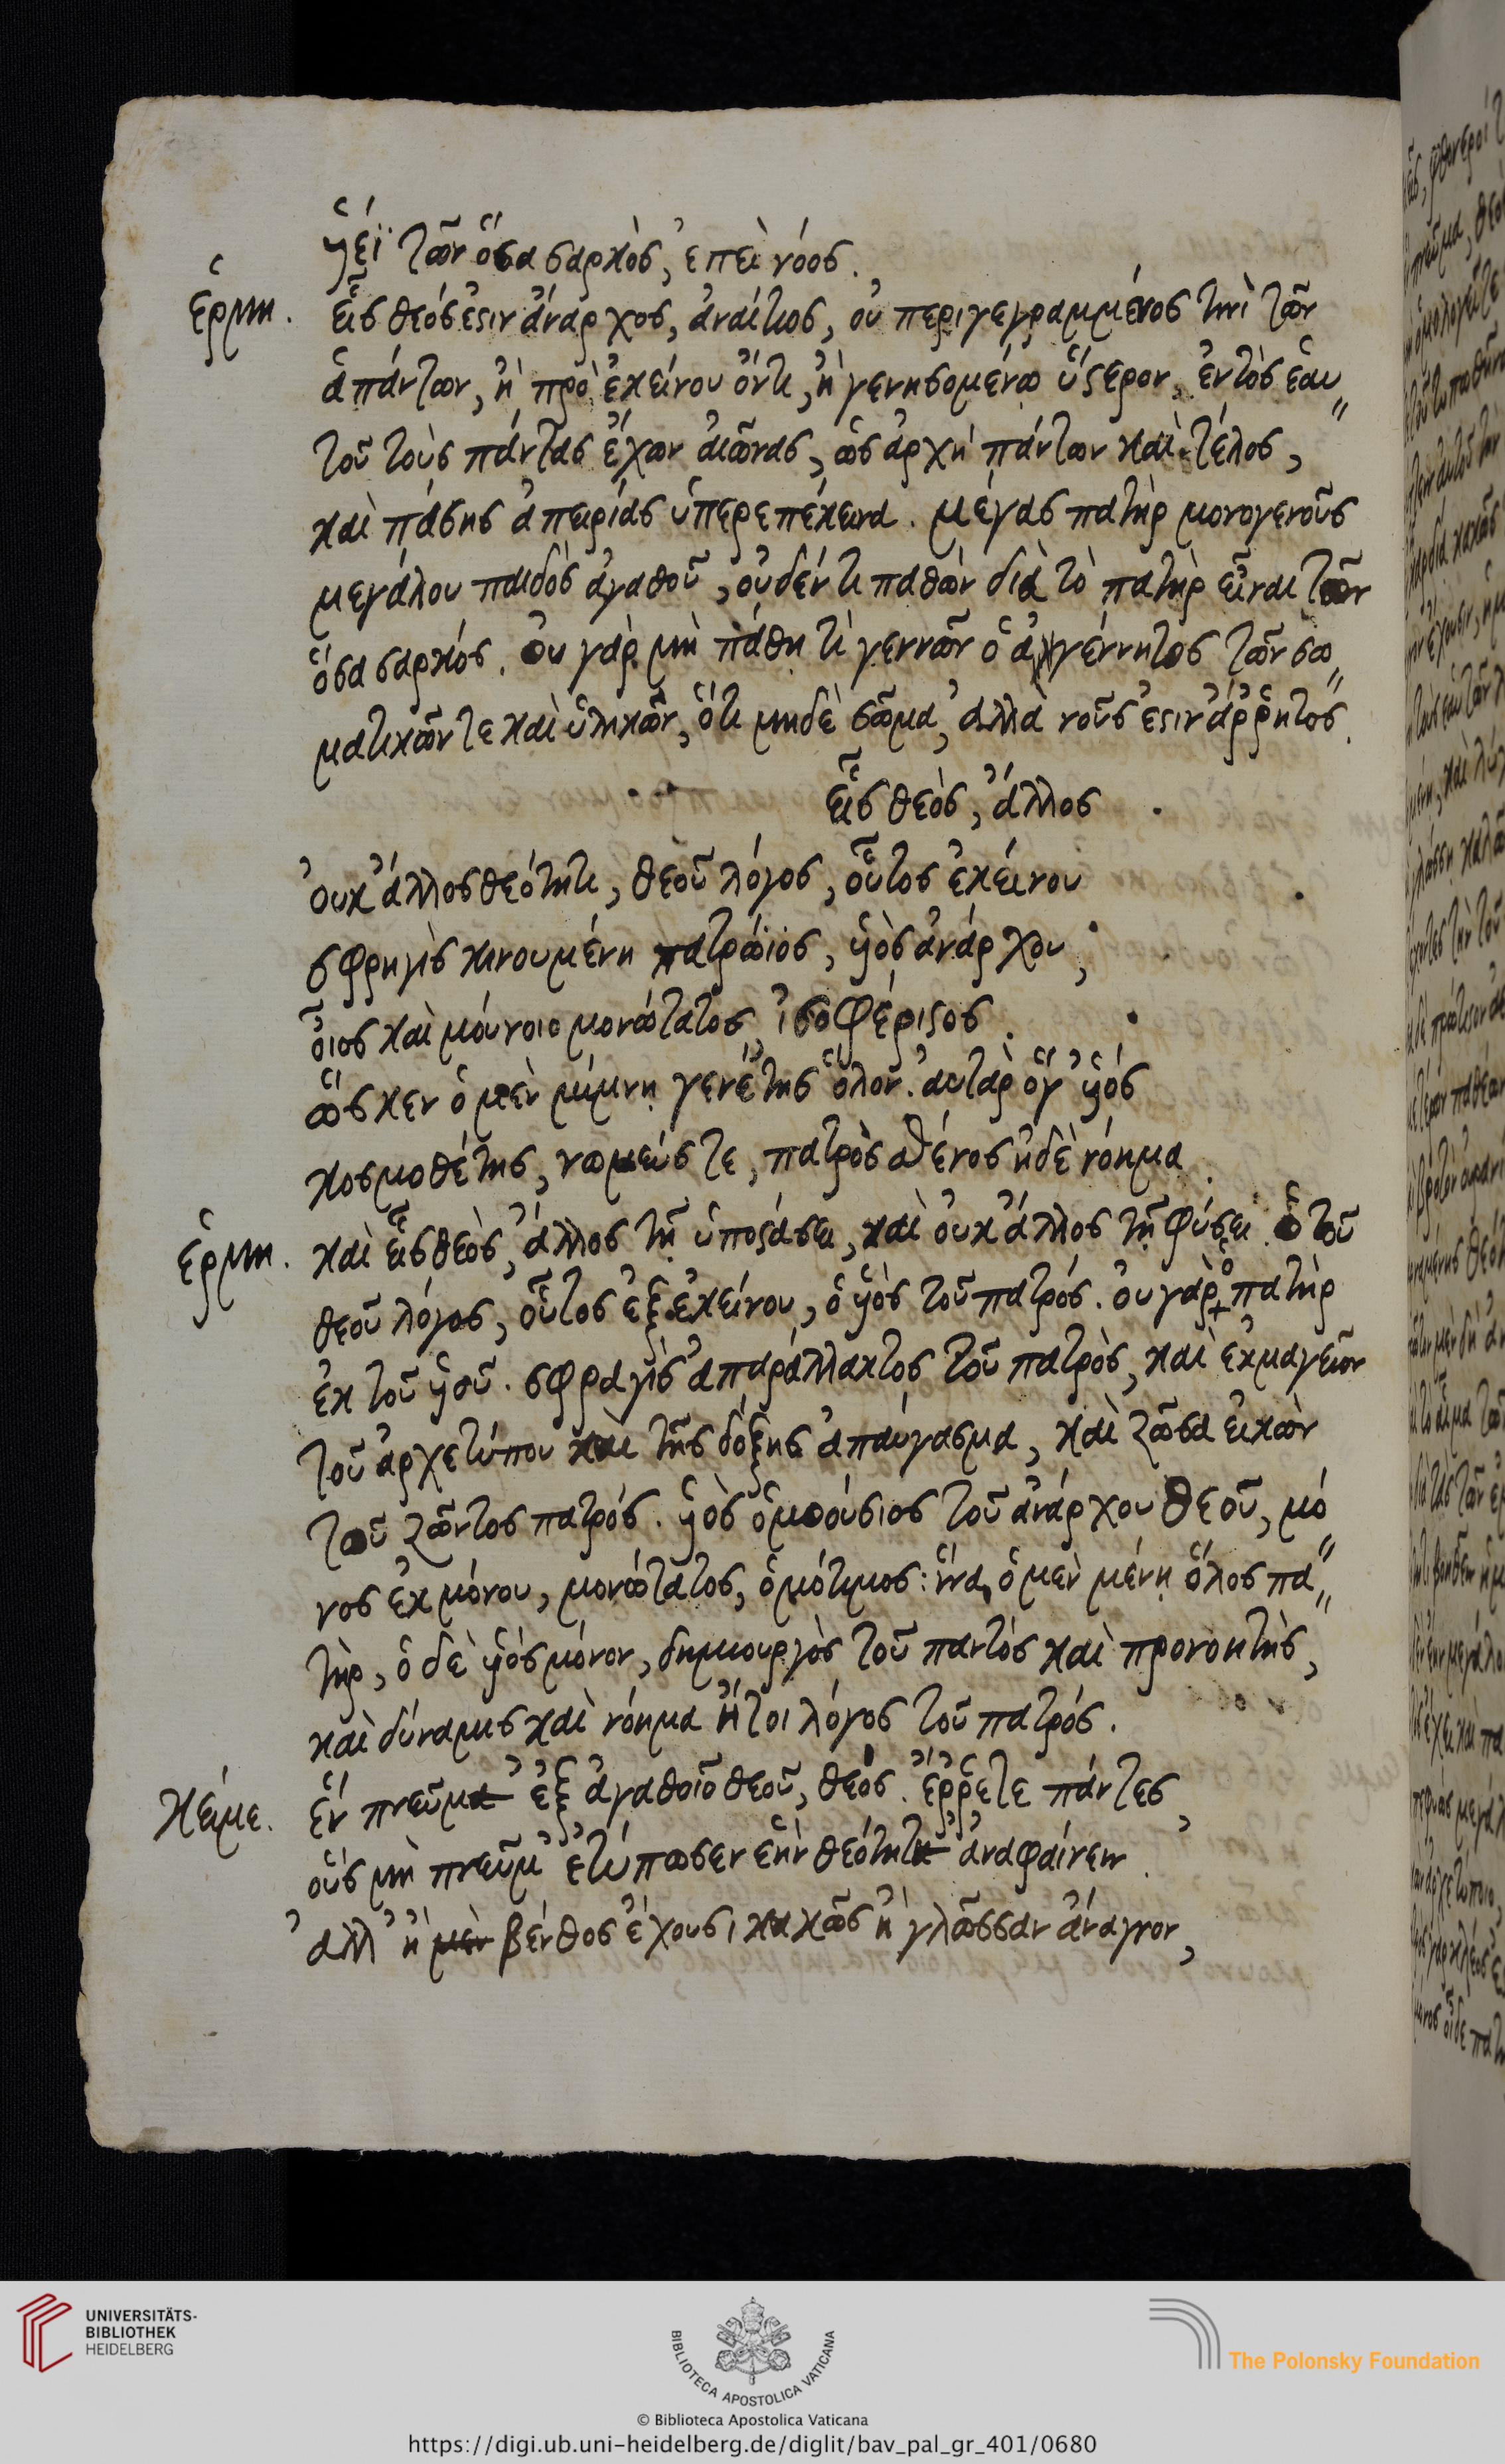 υἱέϊ τῶν ὅσα σαρκὸς, ἐπεὶ νόος.
ἑρμη. εἷς θεός ἐστιν ἄναρχος, ἀναίτιος, οὐ περιγεγραμμένος τινὶ τῶν
ἁπάντων, ἢ πρὸ ἐκείνου ὄντι, ἢ γενησομένω ὕστερον, ἐντὸς ἑαυ"
τοῦ τοὺς πάντας ἔχων αἰῶνας, ὡς ἀρχὴ πάντων καὶ τέλος,
καὶ πάσης ἀπειρίας ὑπερεπέκεινα. μέγας πατὴρ μονογενοῦς
μεγάλου παιδὸς ἀγαθοῦ, οὐδέν τι παθὼν διὰ τὸ πατὴρ εἶναι τῶν
ὅσα σαρκός. οὐ γὰρ μὴ πάθη τὶ γεννῶν ὁ ἀγέννητος τῶν σω"
ματικῶν τε καὶ ὑλικῶν, ὅτι μηδὲ σῶμα, ἀλλὰ νοῦς ἐστιν ἄῤῥητος.
εἷς θεὸς, ἄλλος
οὐκ ἄλλος θεότητι, θεοῦ λόγος, οὗτος ἐκείνου
σφρηγὶς κινουμένη πατρώϊος, υἱὸς ἀνάρχου,
οἷος καὶ μούνοιο μονώτατος, ἰσοφέριστος.
ὥς κεν ὁ μὲν μίμνη γενέτης ὅλον. αὐτὰρ ὅγ' υἱός
κοσμοθέτης, νωμεύς τε, πατρὸς σθένος ἠδὲ νόημα.
ἑρμη. καὶ εἷς θεὸς, ἄλλος τῆ ὑποστάσει, καὶ οὐκ ἄλλος τῆ φύσει. ὁ τοῦ
θεοῦ λόγος, οὗτος ἐξ ἐκείνου, ὁ υἱὸς τοῦ πατρός. οὐ γὰρ ὁ πατὴρ
ἐκ τοῦ υἱοῦ. σφραγὶς ἀπαράλλακτος τοῦ πατρὸς, καὶ ἐκμαγεῖον
τοῦ ἀρχετύπου καὶ τῆς δόξης ἀπαύγασμα, καὶ ζῶσα εἰκὼν
τοῦ ζῶντος πατρός. υἱὸς ὁμοούσιος τοῦ ἀνάρχου θεοῦ, μό"
νος ἐκ μόνου, μονώτατος, ὁμότιμος: ἵνα, ὁ μεν μένη ὅλος πα"
τὴρ, ὁ δὲ υἱὸς μόνον, δημιουργὸς τοῦ παντός καὶ προνοητὴς,
καὶ δύναμις καὶ νόημα ἤτοι λόγος τοῦ πατρός.
κείμε. ἓν πνεῦμα ἐξ ἀγαθοῖο θεοῦ, θεός. ἔῤῥετε πάντες,
οὓς μὴ πνεῦμ' ἐτύπωσεν ἑὴν θεότητα ἀναφαίνειν.
ἀλλ' ἢ μὲν βένθος ἔχουσι κακῶς ἢ γλῶσσαν ἄναγνον,
UNIVERSITÄTS-
BIBLIOTHEK
HEIDELBERG
BIBLIOTECA APOSTOLICA VATICANA
The Polonsky Foundation
© Biblioteca Apostolica Vaticana
https://digi.ub.uni-heidelberg.de/diglit/bav_pal_gr_401/0680